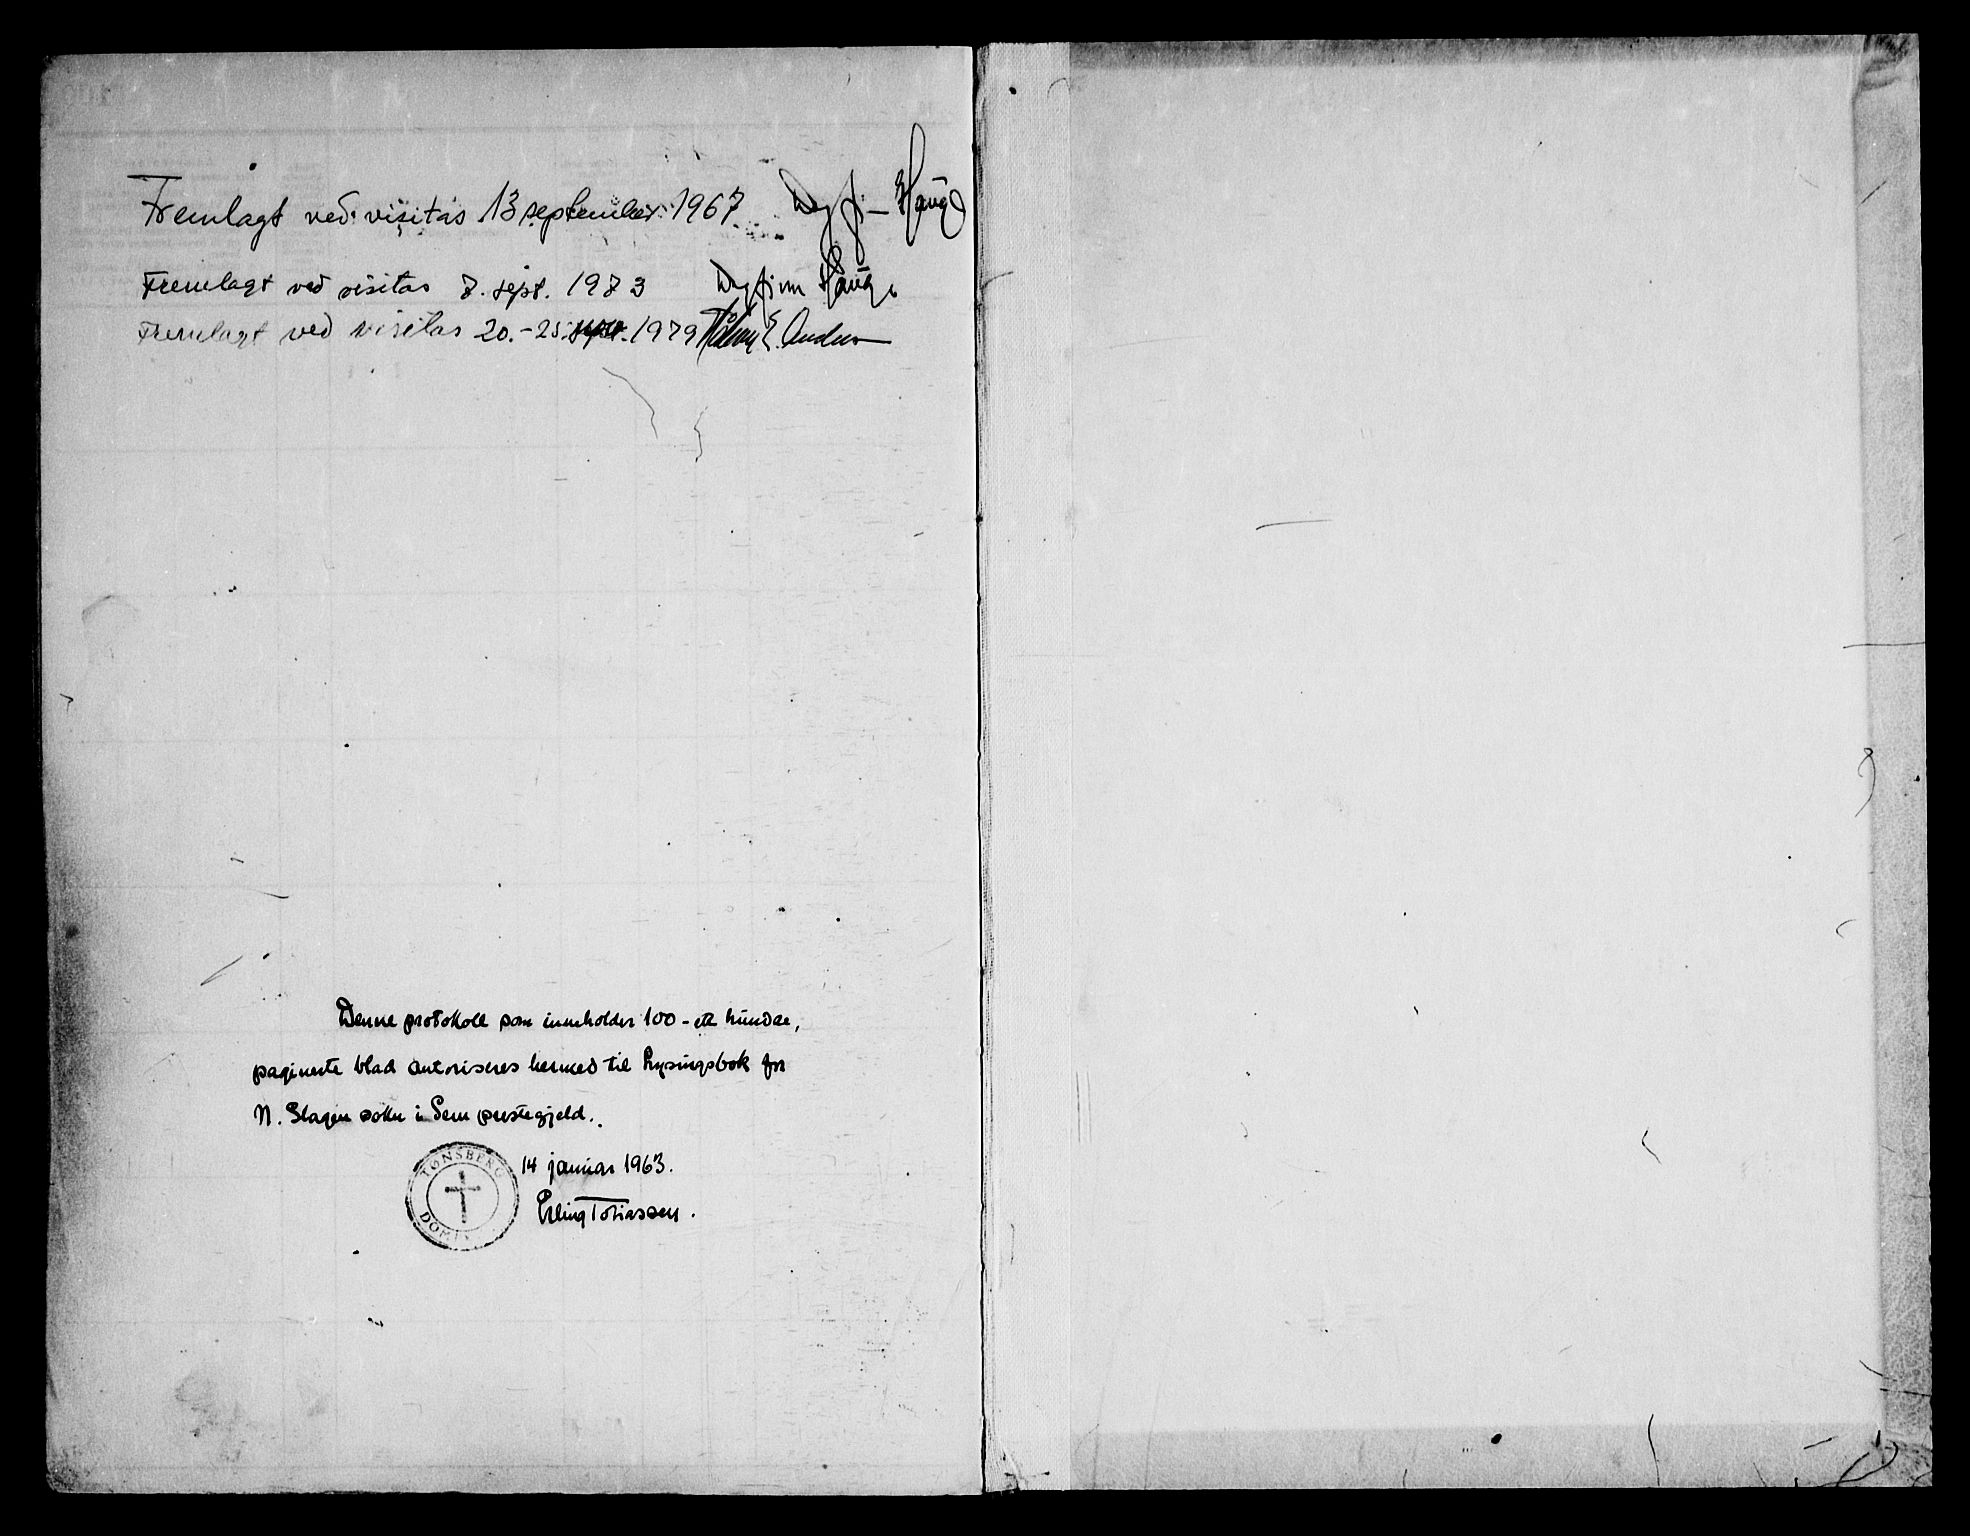 Fremlagt ved visitas 13 september 1967 Dagfinn Hauge
Fremlagt ved visitas 7. sept. 1973 Dagfinn Hauge
Fremlagt ved visitas 20.-25. 1979 Håkon E. Andersen
Denne protokoll som inneholder 100 - ett hundre,
paginerte blad autoriseres hermed til Lysingsbok for
N. Slagen sokn i Sem prestegjeld.
14 januar 1963.
TØNSBERG
Erling Tobiassen.